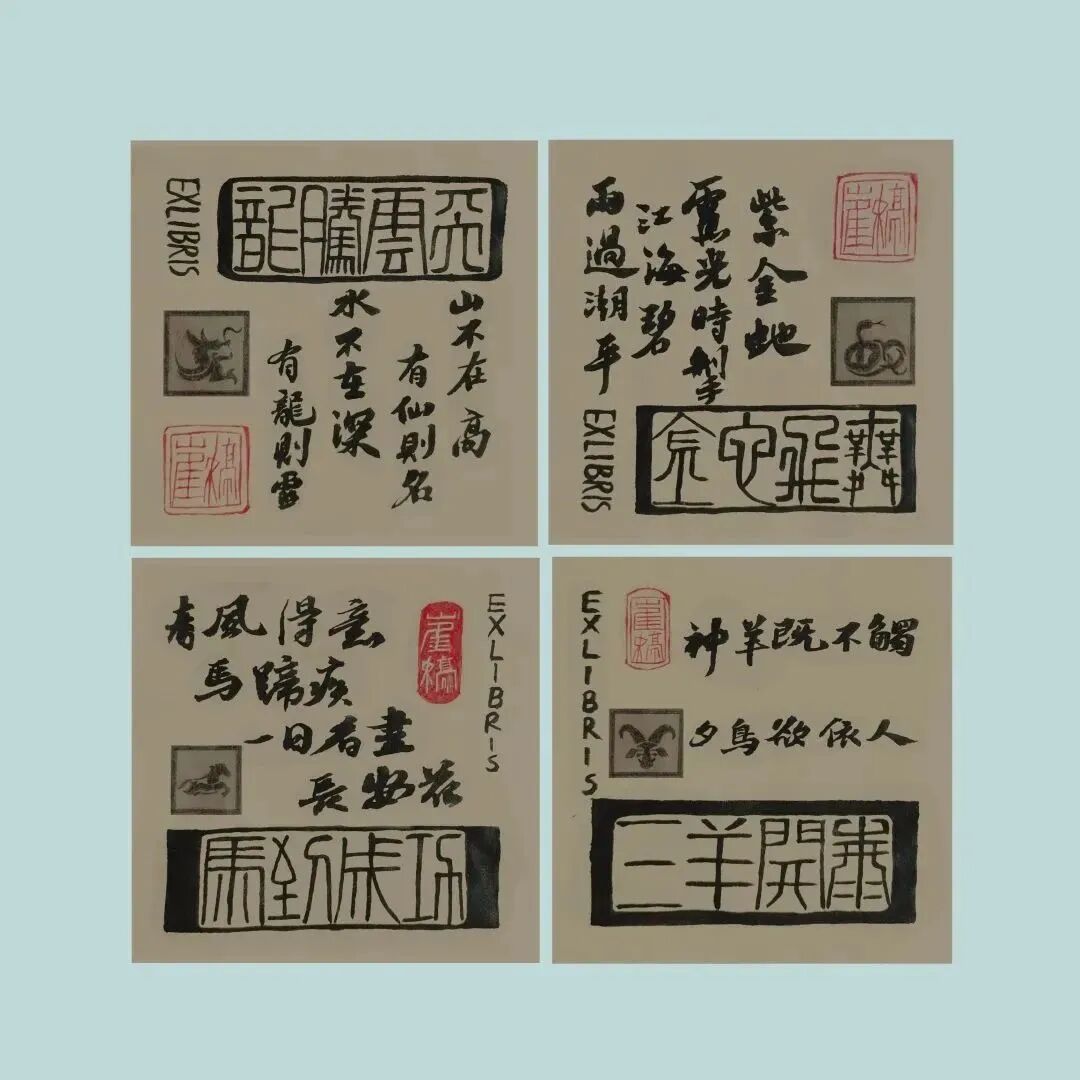 EXLIBRIS
龍騰雲天
山不在高
有仙則名
水不在深
有龍則靈
紫金虵
電光時掣
江海碧
雨過潮平
EXLIBRIS
金它飛舞
春風得意
馬蹄疾
一日看盡
長安花
EXLIBRIS
馬到成功
EXLIBRIS
神羊既不觸
夕鳥欲依人
三羊開泰